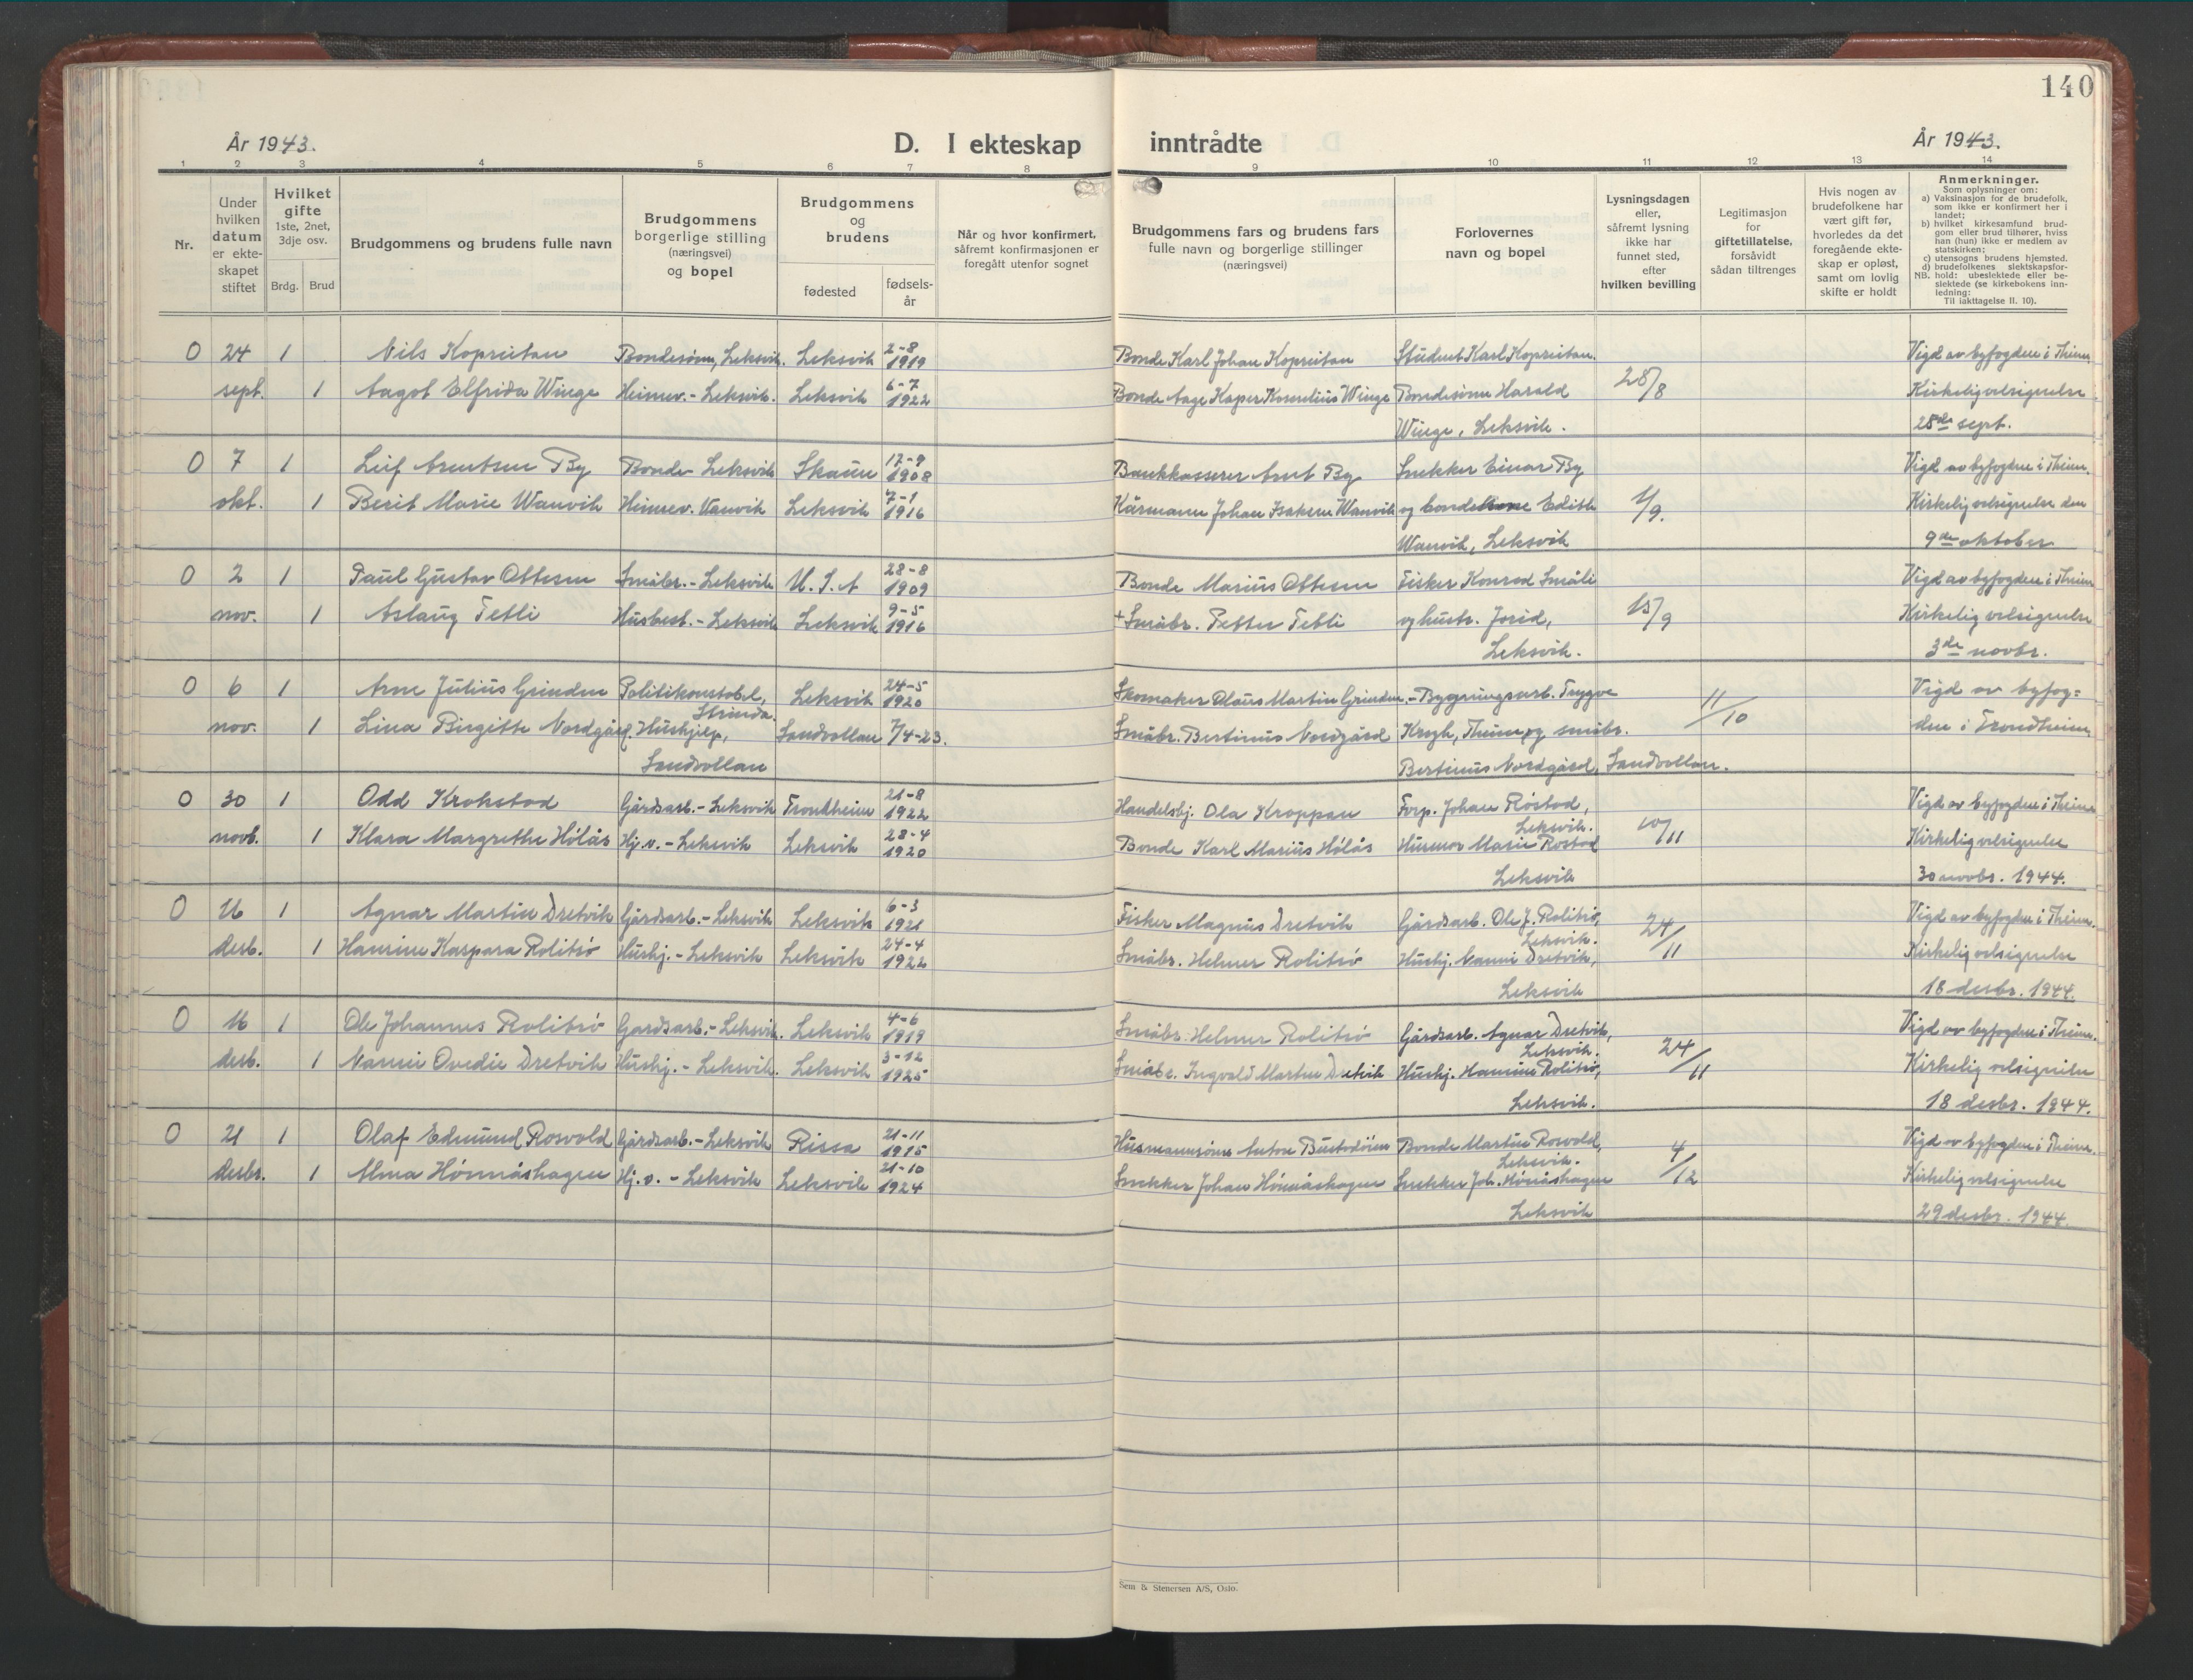 140
År 1943.
D. I ekteskap inntrådte
År 1943.
1 2 3 4 5 6 7 8 9 10 11 12 13 14
Nr.
Under hvilken datum er ekteskapet stiftet
Hvilket gifte 1ste, 2net, 3dje osv.
Brdg. Brud
Brudgommens og brudens fulle navn
Brudgommens borgerlige stilling (næringsvei) og bopel
Brudgommens og brudens
fødested
fødsels-år
Når og hvor konfirmert, såfremt konfirmasjonen er foregått utenfor sognet
Brudgommens fars og brudens fars fulle navn og borgerlige stillinger (næringsvei)
Forlovernes navn og bopel
Lysningsdagen eller, såfremt lysning ikke har funnet sted, efter hvilken bevilling
Legitimasjon for giftetillatelse, forsåvidt sådan tiltrenges
Hvis nogen av brudefolkene har vært gift før, hvorledes da det foregående ekteskap er opløst, samt om lovlig skifte er holdt
Anmerkninger.
Som oplysninger om:
a) Vaksinasjon for de brudefolk, som ikke er konfirmert her i landet;
b) hvilket kirkesamfund brudgom eller brud tilhører, hviss han (hun) ikke er medlem av statskirken;
c) utensogns brudens hjemsted.
d) brudefolkenes slektskapsforhold: ubeslektede eller beslektede (se kirkebokens innledning:
NB. Til iakttagelse II. 10).
0 24 1 Nils Kopreitan Bondesønn, Leksvik. Leksvik 2-8 1919 Bonde Karl Johan Kopreitan Student Karl Kopreitan. Vigd av byfogden i Trheim
sept. 1 Aagot Elfrida Winge Heimev. - Leksvik. Leksvik 6-7 1922 Bonde Aage Kasper Kornelius Winge Bondesønn Harald 28/8 Kirkelig velsignelse
Winge, Leksvik. 28de sept.
0 7 1 Leif Arntsen By Bonde - Leksvik Skaun 17-9 1908 Bankkasserer Arnt By Snekker Einar By Vigd av byfogden i Trheim.
okt. 1 Berit Marie Wanvik Heimev. Vanvik Leksvik 7-1 1916 Kårmann Johan Isaksen Wanvik og bonde Edith 1/9. Kirkelig velsignelse den
Wanvik, Leksvik 9de oktober
0 2 1 Paul Gustav Ottesen Småbr. - Leksvik U.S.A 28-8 1909 Bonde Marius Ottesen Fisker Konrad Småli Vigd av byfogden i Trheim
nov. 1 Aslaug Tetli Husbest. - Leksvik Leksvik 9-5 1916 + Småbr. Petter Tetli og hustr. Jorid, 15/9 Kirkelig velsignelse
Leksvik. 3de novbr.
0 6 1 Arne Julius Grinden Politikonstabel, Strinda. Leksvik 24-5 1920 Skomaker Olaus Martin Grinden. - Bygningsarb. Trygve 11/10 Vigd av byfog-
nov. 1 Lina Birgitte Nordgård. Hushjelp, Sandvollan 7/4-23. Småbr. Bertinus Nordgård Krogh, Trheim og småbr. den i Trondheim
Sandvollan Bertinus Nordgård, Sandvollan.
0 30 1 Odd Krokstad Gårdsarb. - Leksvik Trondheim 21-8 1922 Handelsbj. Ola Kroppan Forp. Johan Røstad, Leksvik. Vigd av byfogden i Trheim
novb. 1 Klara Margrethe Hölås Hj.v. - Leksvik Leksvik 28-4 1920 Bonde Karl Marius Hölås Husmor Marie Röstad 10/11 Kirkelig velsignelse
Leksvik 30 novbr. 1944.
0 16 1 Agnar Martin Dretvik Gårdsarb. - Leksvik Leksvik 6-3 1921 Fisker Magnus Dretvik Gårdsarb. Ole J. Rolitsö, Leksvik. 24/11 Vigd av byfogden i Trheim.
desb. 1 Hanrine Kaspara Rolitsö Hushj. - Leksvik Leksvik 24-4 1922 Småbr. Helmer Rolitsö Hushj. Nanni Dretvik, Kirkelig velsignelse
Leksvik 18 desbr. 1944.
0 16 1 Ole Johannes Rolitsö Gardsarb. - Leksvik. Leksvik 4-6 1919 Småbr. Helmer Rolitsö Gårdsarb. Agnar Dretvik, Leksvik. 24/11 Vigd av byfogden i Trheim.
desb. 1 Nanni Ovedie Dretvik Hushj. - Leksvik. Leksvik 3-12 1925 Småbr. Ingvald Martin Dretvik Hushj. Hanrine Rolitsö, Kirkelig velsignelse
Leksvik. 18 desbr. 1944.
0 21 1 Olaf Edmund Rosvold Gårdsarb. - Leksvik Rissa 21-11 1915 Husmannsönn Anton Bonde Martin Rosvold, Leksvik. 4/12 Vigd av byfogden i Trheim.
desbr. 1 Alma Hönnåshagen Hj.v. - Leksvik Leksvik 21-10 1924 Snekker Johan Hönnåshagen Snekker Joh. Hönnåshagen Kirkelig velsignelse
Leksvik 29 desbr. 1944.
Sem & Stenersen A/S, Oslo.